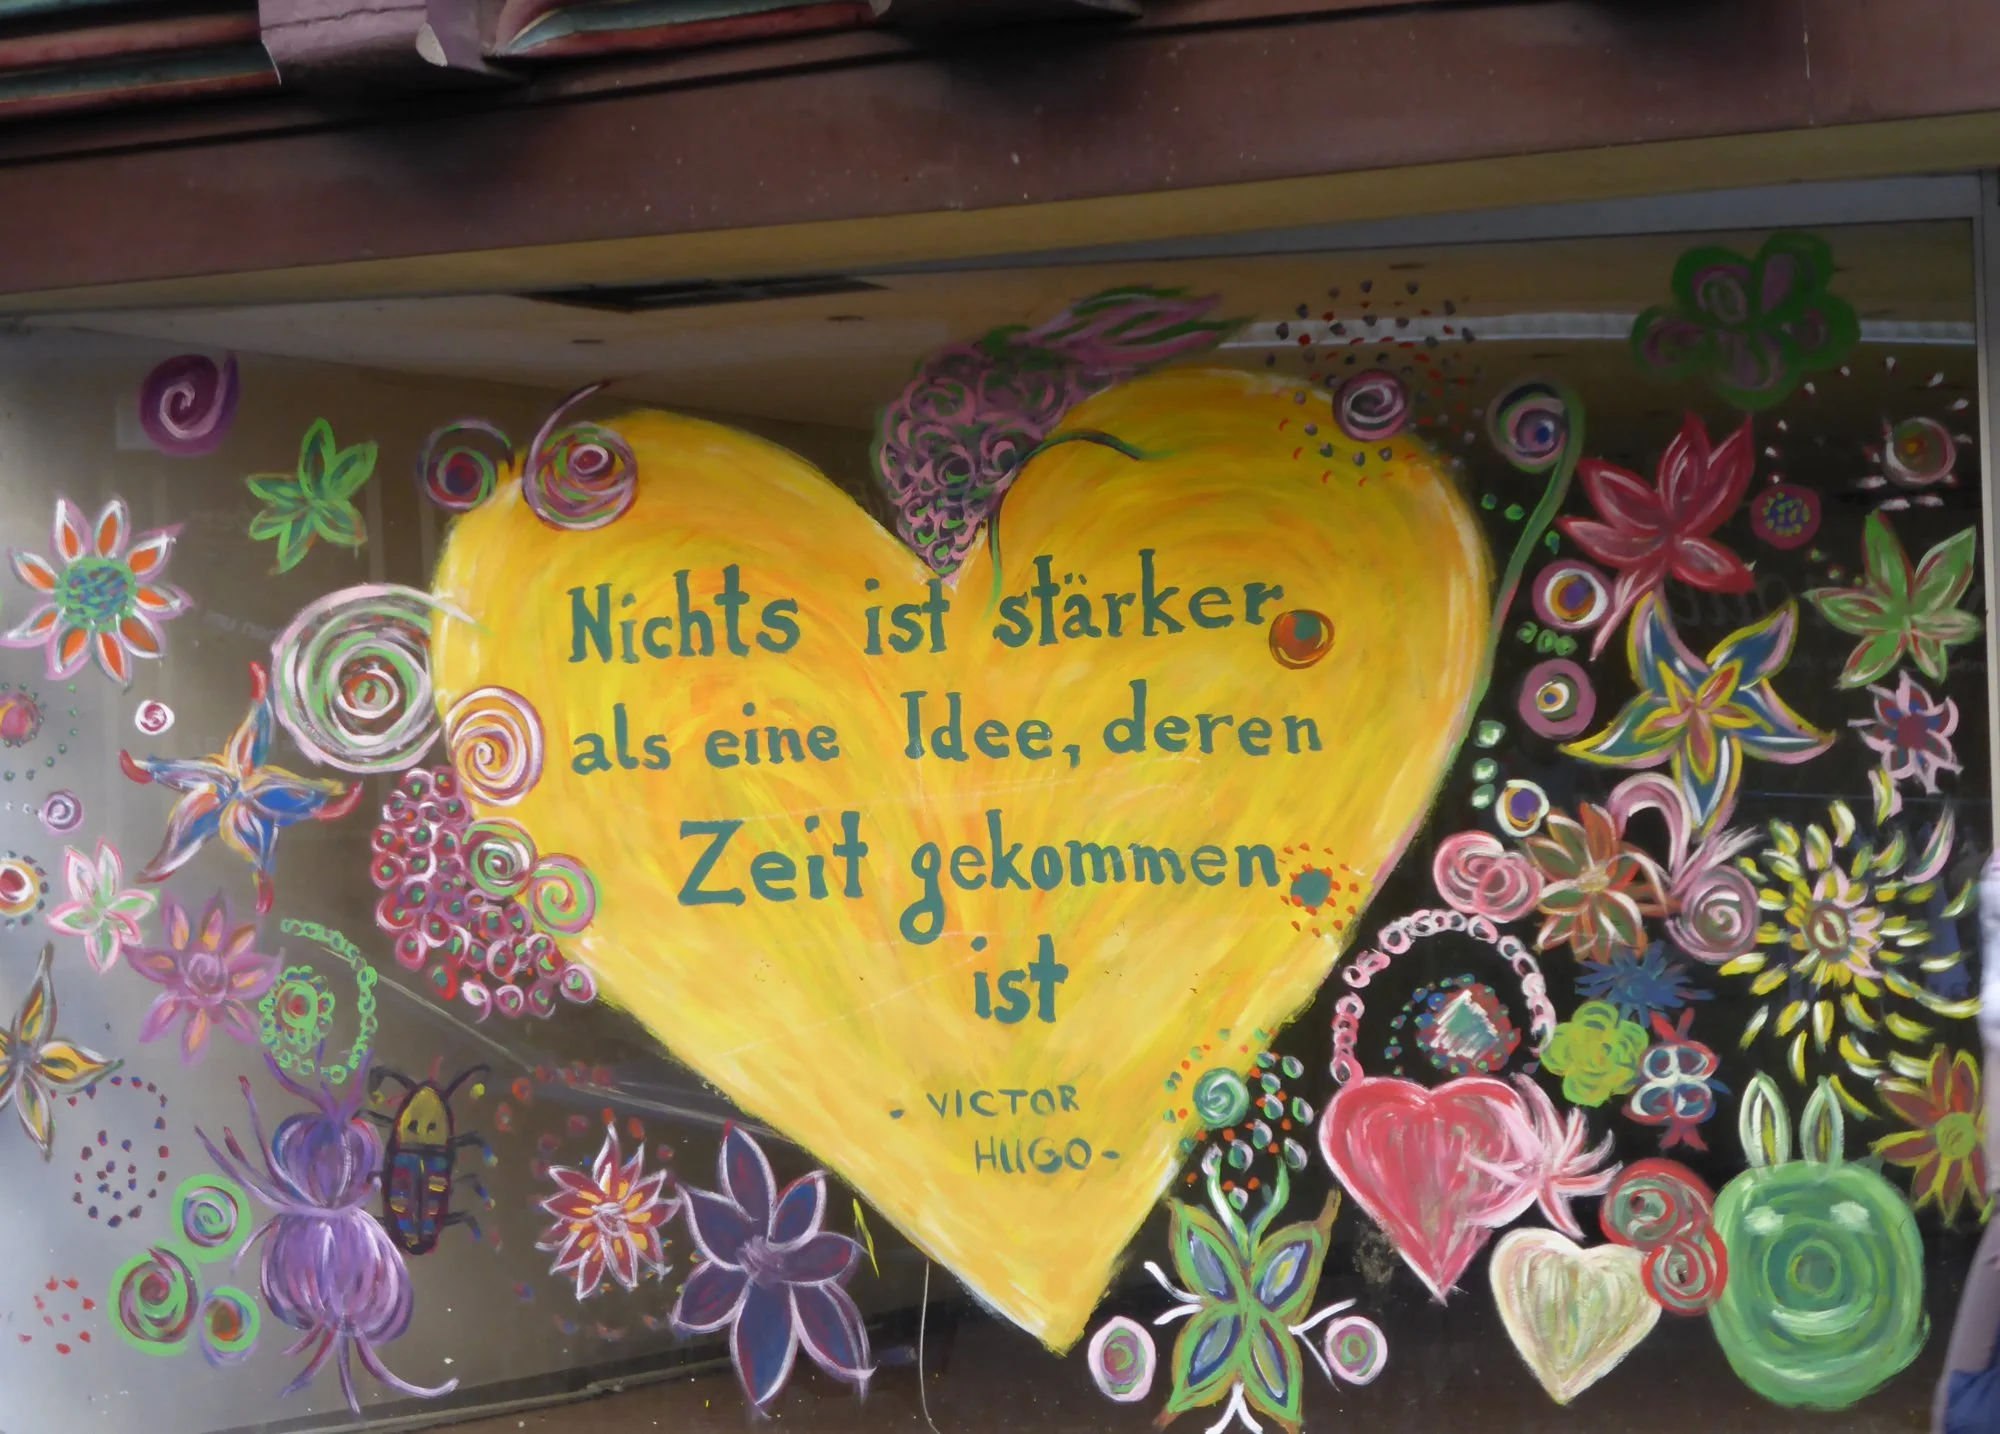 Nichts ist stärker
als eine Idee, deren
Zeit gekommen
ist
- VICTOR
HUGO -